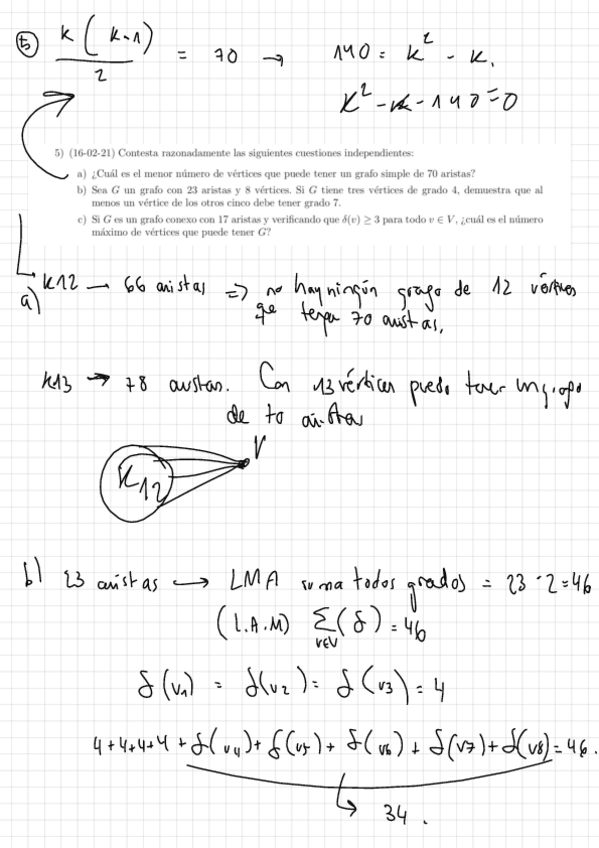 5) k(k-1)/2 = 70 → 140 = k² - k.
k² - k - 140 = 0
5) (16-02-21) Contesta razonadamente las siguientes cuestiones independientes:
a) ¿Cuál es el menor número de vértices que puede tener un grafo simple de 70 aristas?
b) Sea G un grafo con 23 aristas y 8 vértices. Si G tiene tres vértices de grado 4, demuestra que al
menos un vértice de los otros cinco debe tener grado 7.
c) Si G es un grafo conexo con 17 aristas y verificando que δ(v) ≥ 3 para todo v ∈ V, ¿cuál es el número
máximo de vértices que puede tener G?
a) K12 → 66 aristas => no hay ningún grafo de 12 vértices
que tenga 70 aristas.
K13 → 78 aristas. Con 13 vértices puedo tener un grafo
de 70 aristas
K12 V
b) 23 aristas → LMA suma todos grados = 23·2=46
(L.A.M) Σ(δ) = 46
v∈V
δ(v1) = δ(v2) = δ(v3) = 4
4+4+4+4 + δ(v4) + δ(v5) + δ(v6) + δ(v7) + δ(v8) = 46.
34.